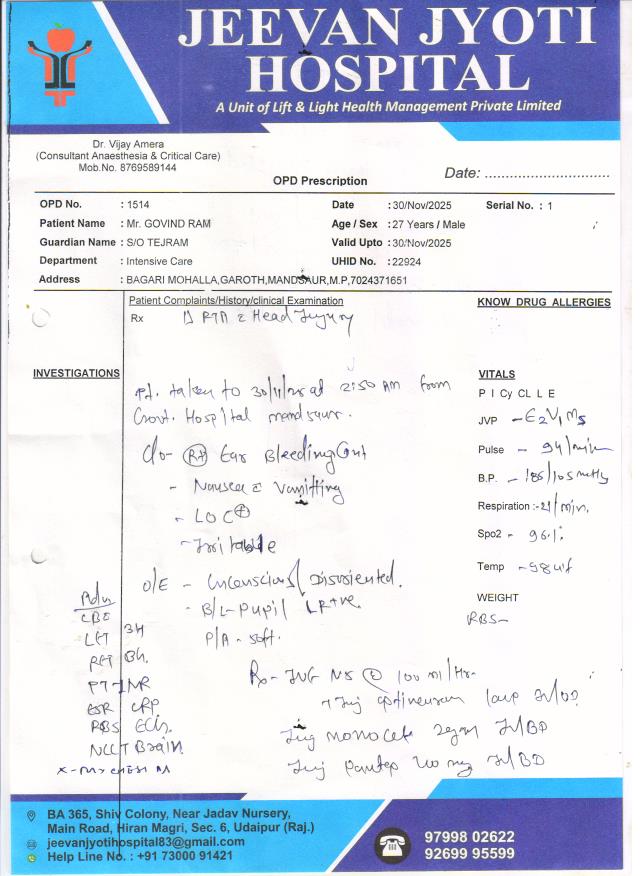 JEEVAN JYOTI
HOSPITAL
A Unit of Lift & Light Health Management Private Limited
Dr. Vijay Amera
(Consultant Anaesthesia & Critical Care)
Mob.No. 8769589144
Date: ..............................
OPD Prescription
OPD No. : 1514 Date : 30/Nov/2025 Serial No. : 1
Patient Name : Mr. GOVIND RAM Age / Sex : 27 Years / Male
Guardian Name : S/O TEJRAM Valid Upto : 30/Nov/2025
Department : Intensive Care UHID No. : 22924
Address : BAGARI MOHALLA,GAROTH,MANDSAUR,M.P,7024371651
Patient Complaints/History/clinical Examination
KNOW DRUG ALLERGIES
Rx RTA c Head Injury
INVESTIGATIONS
VITALS
P I Cy CL L E
Pt. taken to 30/11/25 at 2:50 AM from
Govt. Hospital mandsaur.
JVP - E2V1M5
Pulse - 94/min
B.P. - 185/105 mmHg
Respiration :- 21/min.
Spo2 - 96%
Temp - 98
WEIGHT
RBS-
C/o - Rt Ear Bleeding
- Nausea c Vomitting
- LOC +
- Irritable
O/E - Unconscious/ Disoriented.
- B/L - Pupil LR +ve.
P/A - soft.
Adv
CBC
LFT
RFT
PT-INR
ESR CRP
RBS ECG.
NCCT Brain
X-Ray chest PA
Rx- IVF NS @ 100 ml/Hr-
Inj
Inj monocef 2gm IV/BD
Inj Pantop 40 mg IV/BD
BA 365, Shiv Colony, Near Jadav Nursery,
Main Road, Hiran Magri, Sec. 6, Udaipur (Raj.)
jeevanjyotihospital83@gmail.com
Help Line No. : +91 73000 91421
97998 02622
92699 95599